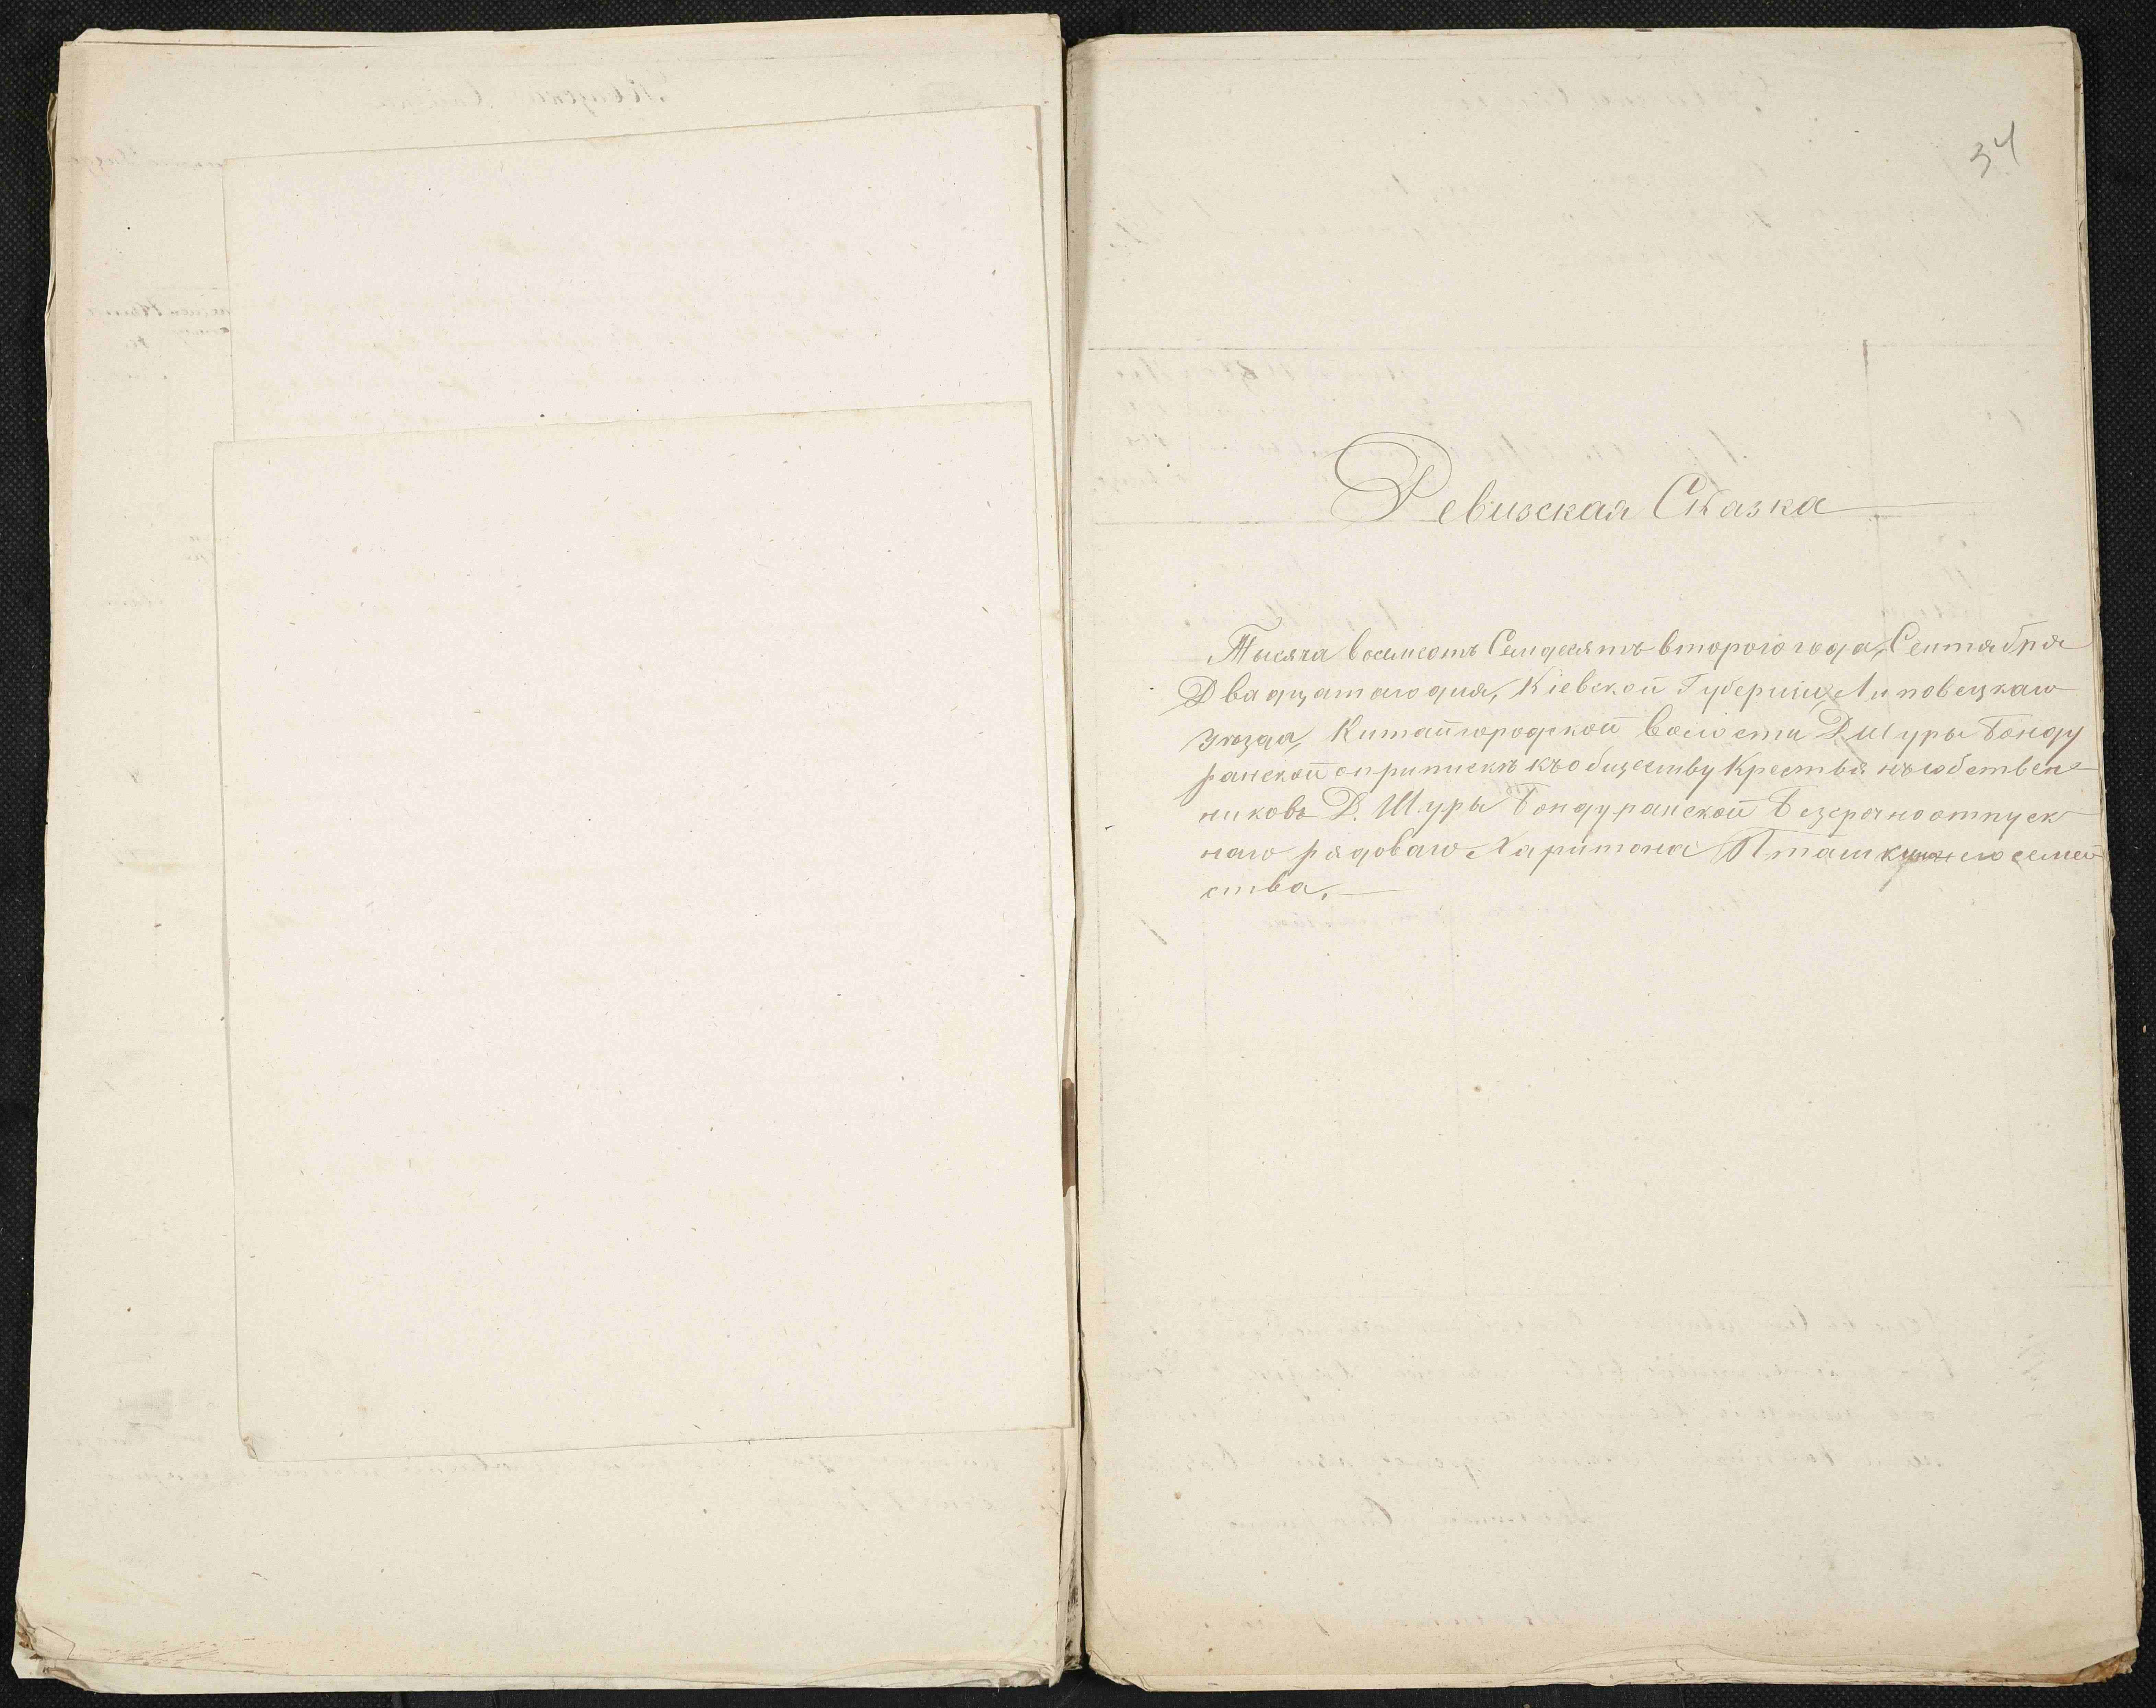 34
Ревизская Сказка
Тысяча восемсотъ Семдесятъ второго года, Сентября
Двадцатаго дня, Кіевской Губерніи, Липовецкаго
уѣзда, Китайгородской волости Д Щуры Бонду
ранской о припискѣ къ обществу Крестьянъ собствен-
никовъ Д. Щуры Бондуранской Безсрочноотпуск
наго рядоваго Харитона Пташки его семей
ства.